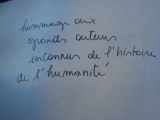 hommage aux
grands auteurs
inconnus de l'histoire
de l'humanité